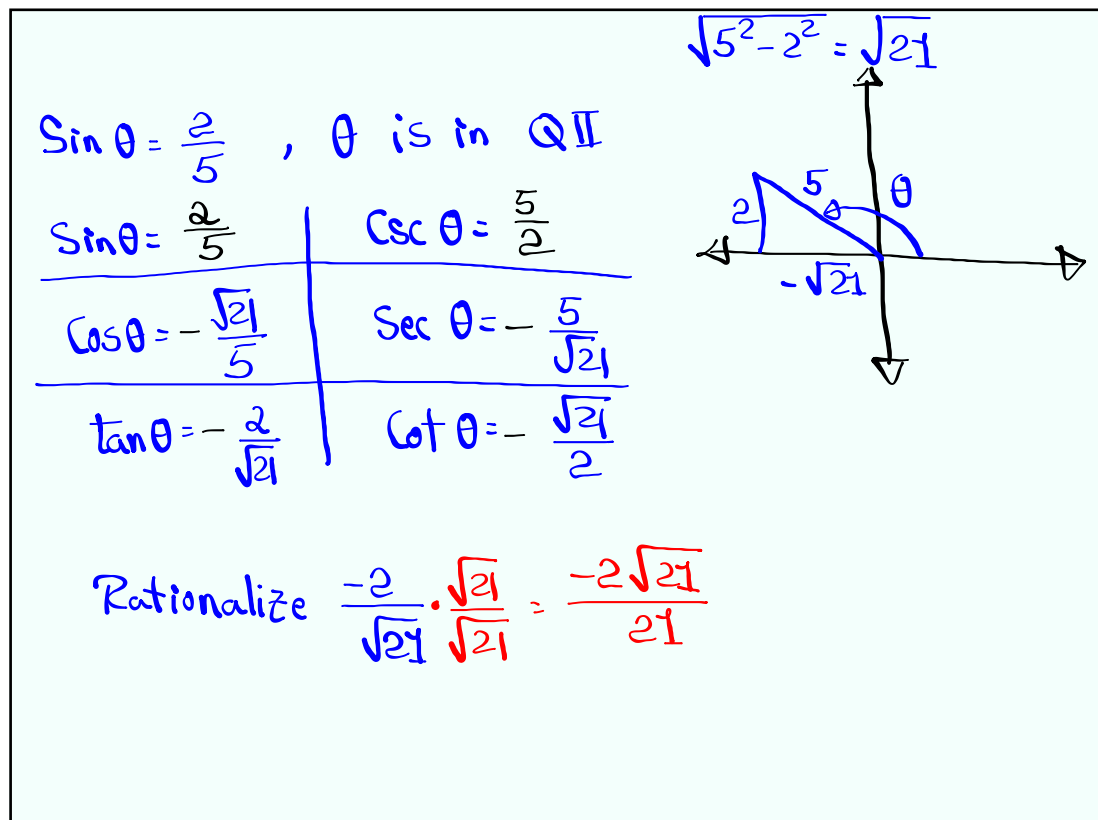 √(5² - 2²) = √21
Sin θ = 2/5 , θ is in QII
Sin θ = 2/5 Csc θ = 5/2
Cos θ = - √21/5 Sec θ = - 5/√21
tan θ = - 2/√21 Cot θ = - √21/2
2 5 θ
-√21
Rationalize -2/√21 · √21/√21 = -2√21/21